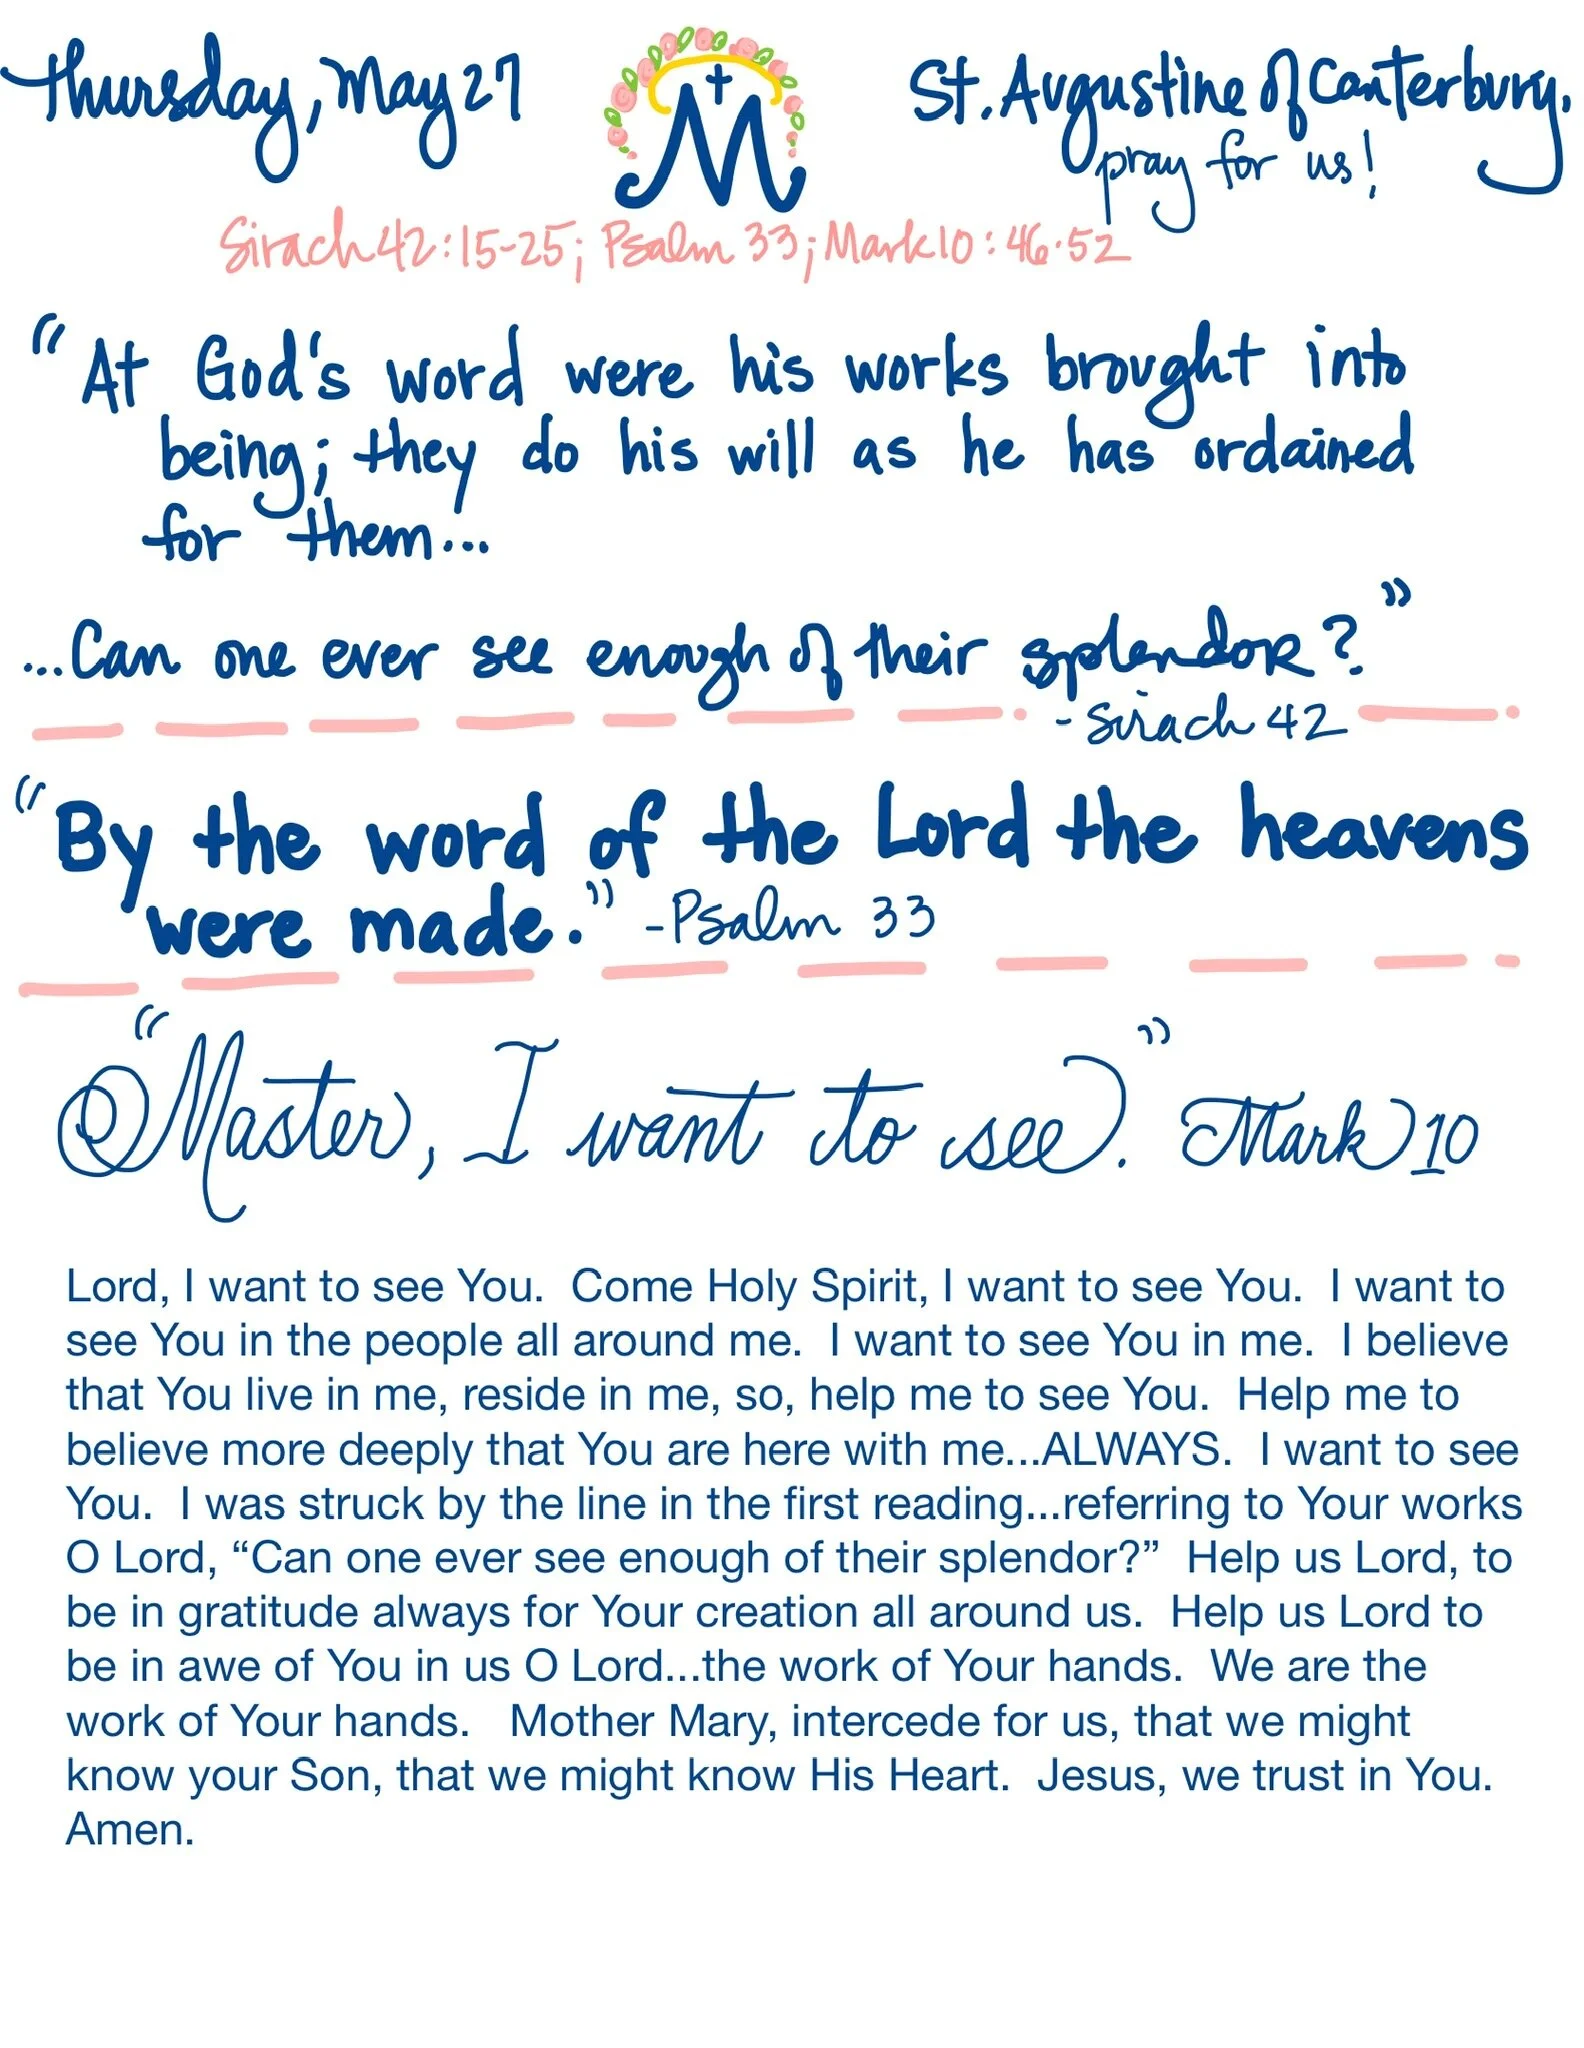 Thursday, May 27
M
St. Augustine of Canterbury,
pray for us!
Sirach 42:15-25; Psalm 33; Mark 10:46-52
"At God's word were his works brought into
being; they do his will as he has ordained
for them...
...Can one ever see enough of their splendor?"
-Sirach 42
"By the word of the Lord the heavens
were made." -Psalm 33
"Master, I want to see." Mark 10
Lord, I want to see You.  Come Holy Spirit, I want to see You.  I want to
see You in the people all around me.  I want to see You in me.  I believe
that You live in me, reside in me, so, help me to see You.  Help me to
believe more deeply that You are here with me...ALWAYS.  I want to see
You.  I was struck by the line in the first reading...referring to Your works
O Lord, “Can one ever see enough of their splendor?”  Help us Lord, to
be in gratitude always for Your creation all around us.  Help us Lord to
be in awe of You in us O Lord...the work of Your hands.  We are the
work of Your hands.   Mother Mary, intercede for us, that we might
know your Son, that we might know His Heart.  Jesus, we trust in You.
Amen.